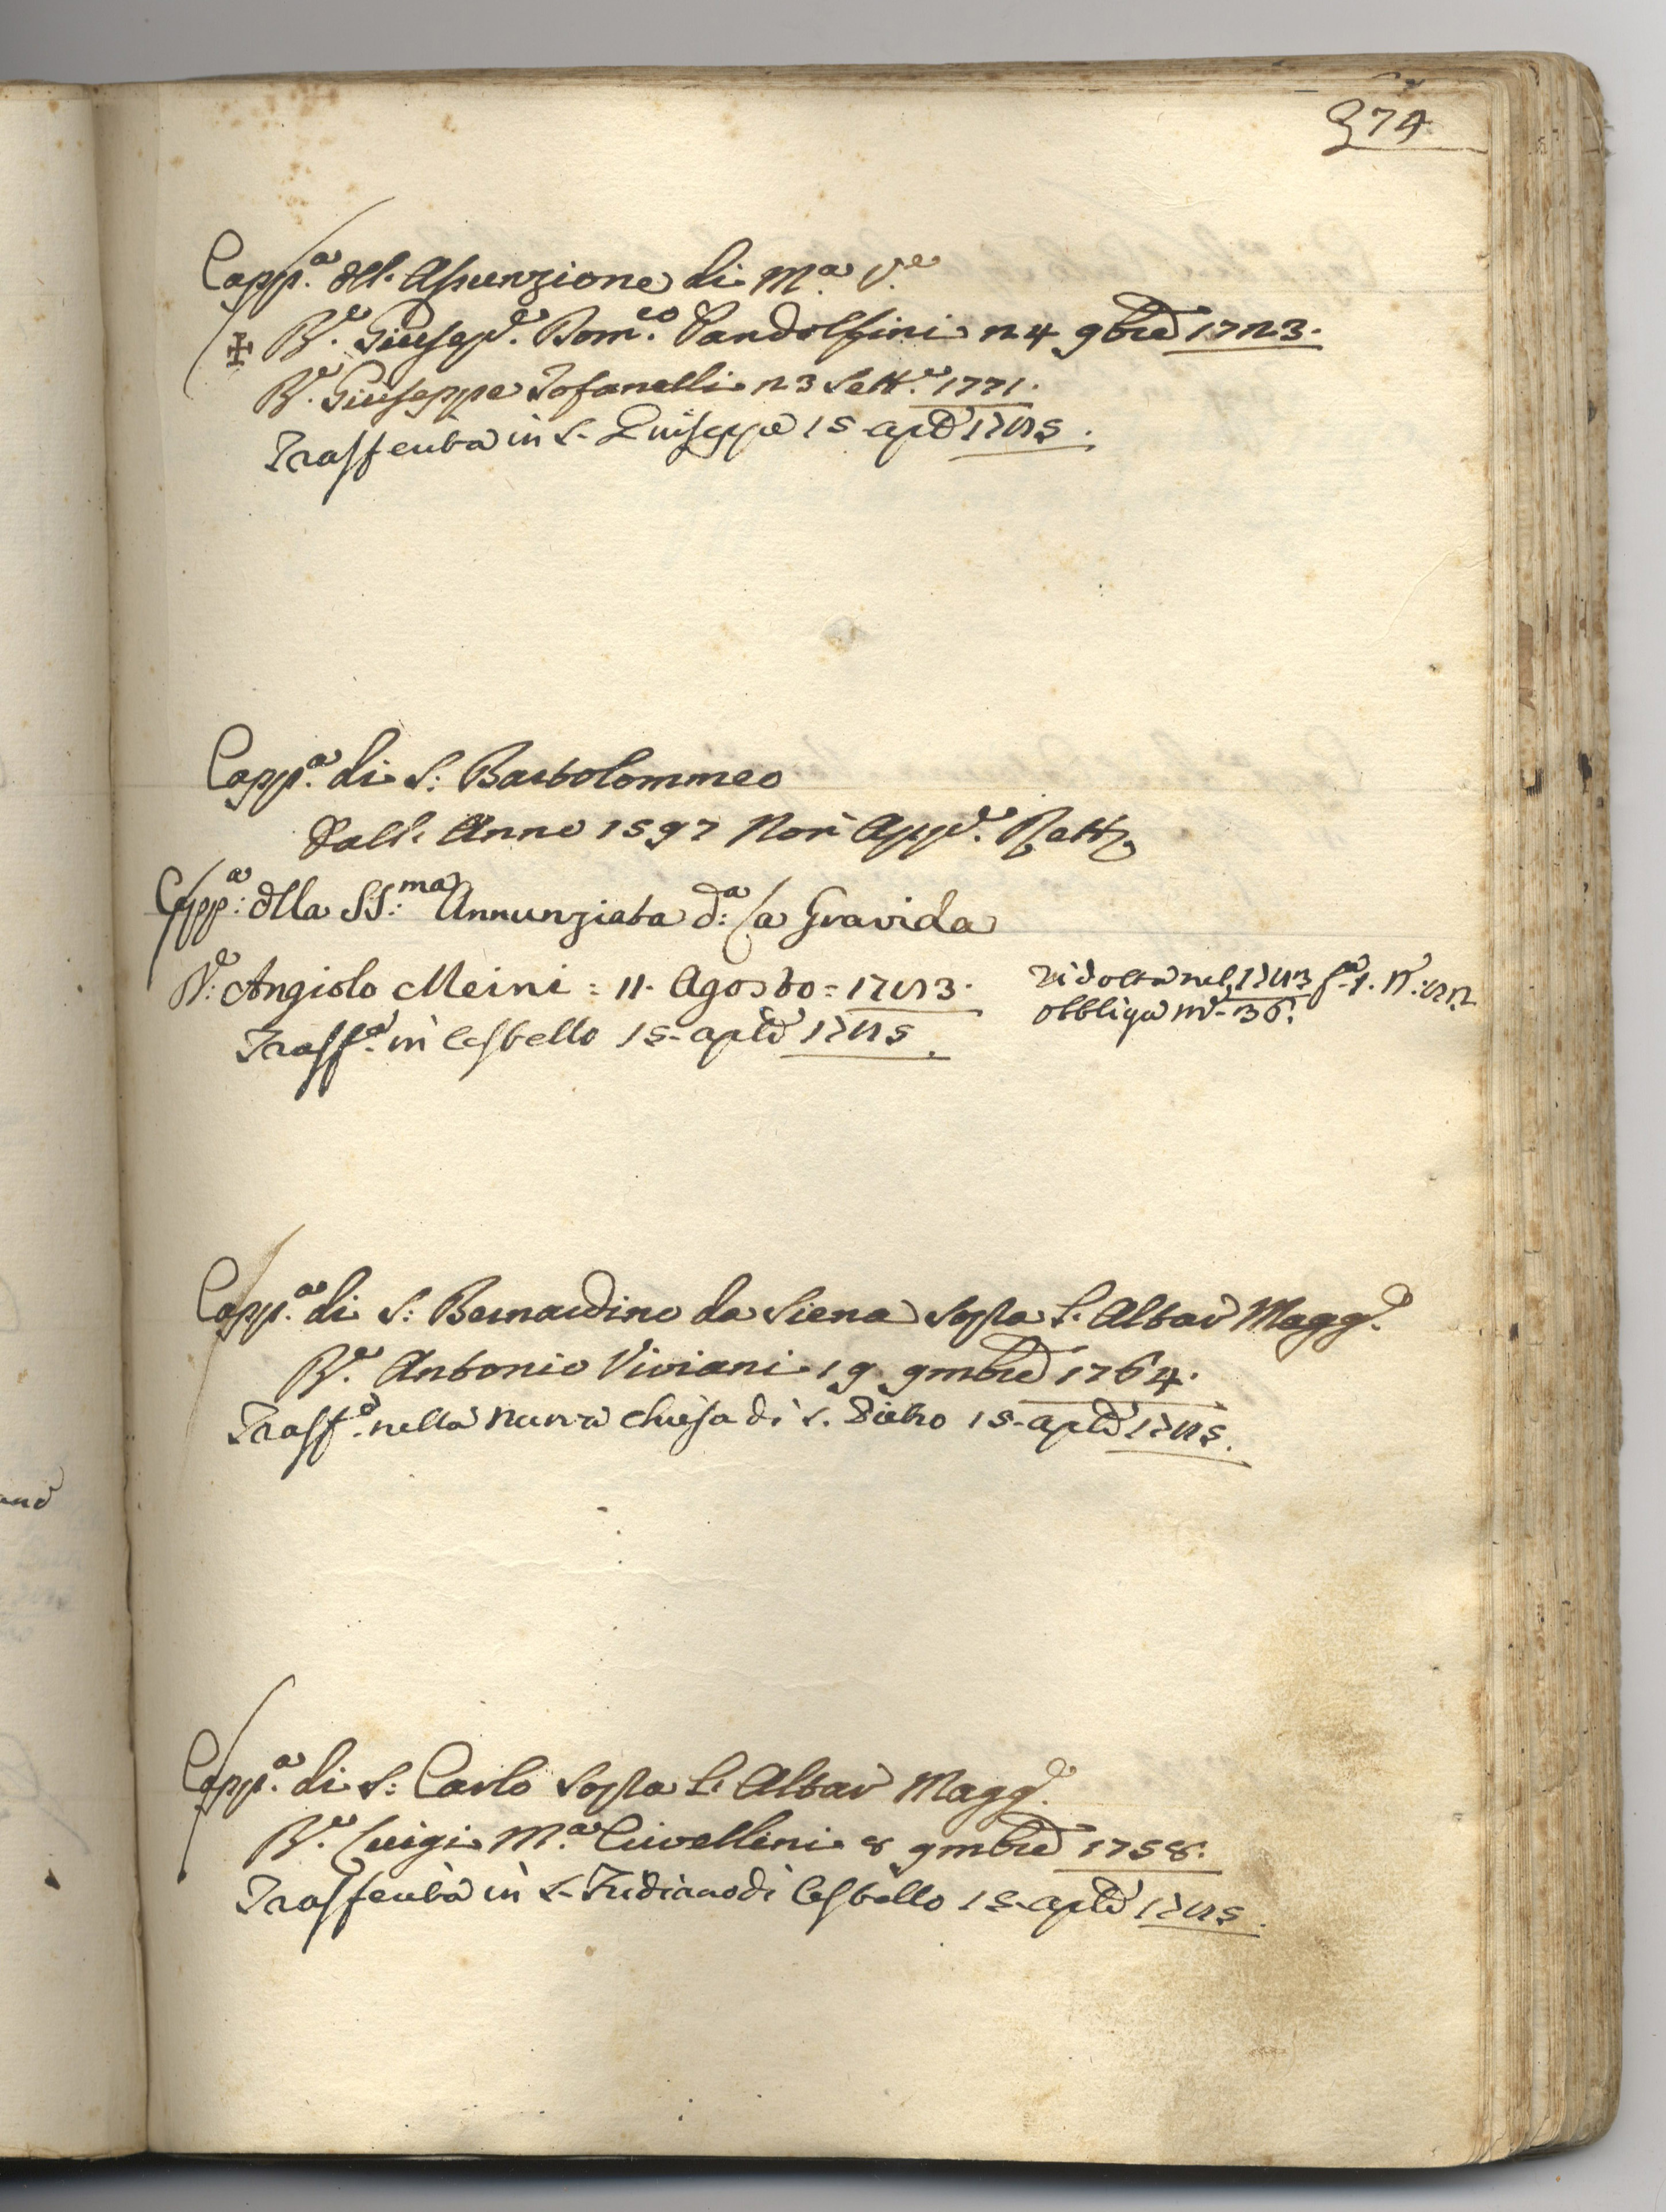 374
Capp.a dell' Assunzione di M.a V.e
R.e Giusep.e Dom.co Pandolfini 24 9bre 1723.
R.e Giuseppe Tofanelli 23 Sett.e 1771.
Trasferita in S. Giuseppe 15 aple 1785.
Capp.a di S: Bartolommeo
Dall' Anno 1597 Non App.e Rett.
Capp:a della SS:ma Annunziata d:a la Gravida
R:e Angiolo Meini = 11. Agosto = 1783.
ridotta nel 1783 f.a 1. N.: 82
obbligo m.e 36.
Trasf.a in Cestello 15. aple 1785.
Capp.a di S: Bernardino da Siena sopra l' Altar Magg.e
R.e Antonio Viviani 19 9mbre 1764.
Trasf.a nella nuova chiesa di S. Pietro 15. aple 1785.
Capp.a di S: Carlo sopra l' Altar Magg.e
R.e Luigi M.a Crivellini 8 9mbre 1758.
Trasferita in S. Fridiano di Cestello 15. aple 1785.